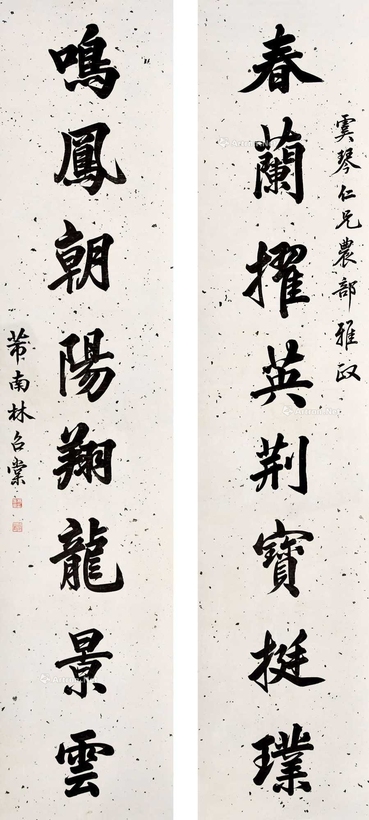 春蘭擢英荆寶挺璞
虞琴仁兄農部雅政
鳴鳳朝陽翔龍景雲
芾南林召棠